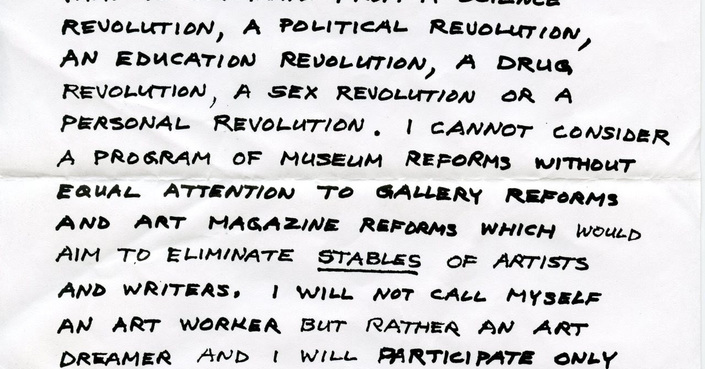 FROM A SCIENCE
REVOLUTION, A POLITICAL REVOLUTION,
AN EDUCATION REVOLUTION, A DRUG
REVOLUTION, A SEX REVOLUTION OR A
PERSONAL REVOLUTION. I CANNOT CONSIDER
A PROGRAM OF MUSEUM REFORMS WITHOUT
EQUAL ATTENTION TO GALLERY REFORMS
AND ART MAGAZINE REFORMS WHICH WOULD
AIM TO ELIMINATE STABLES OF ARTISTS
AND WRITERS. I WILL NOT CALL MYSELF
AN ART WORKER BUT RATHER AN ART
DREAMER AND I WILL PARTICIPATE ONLY